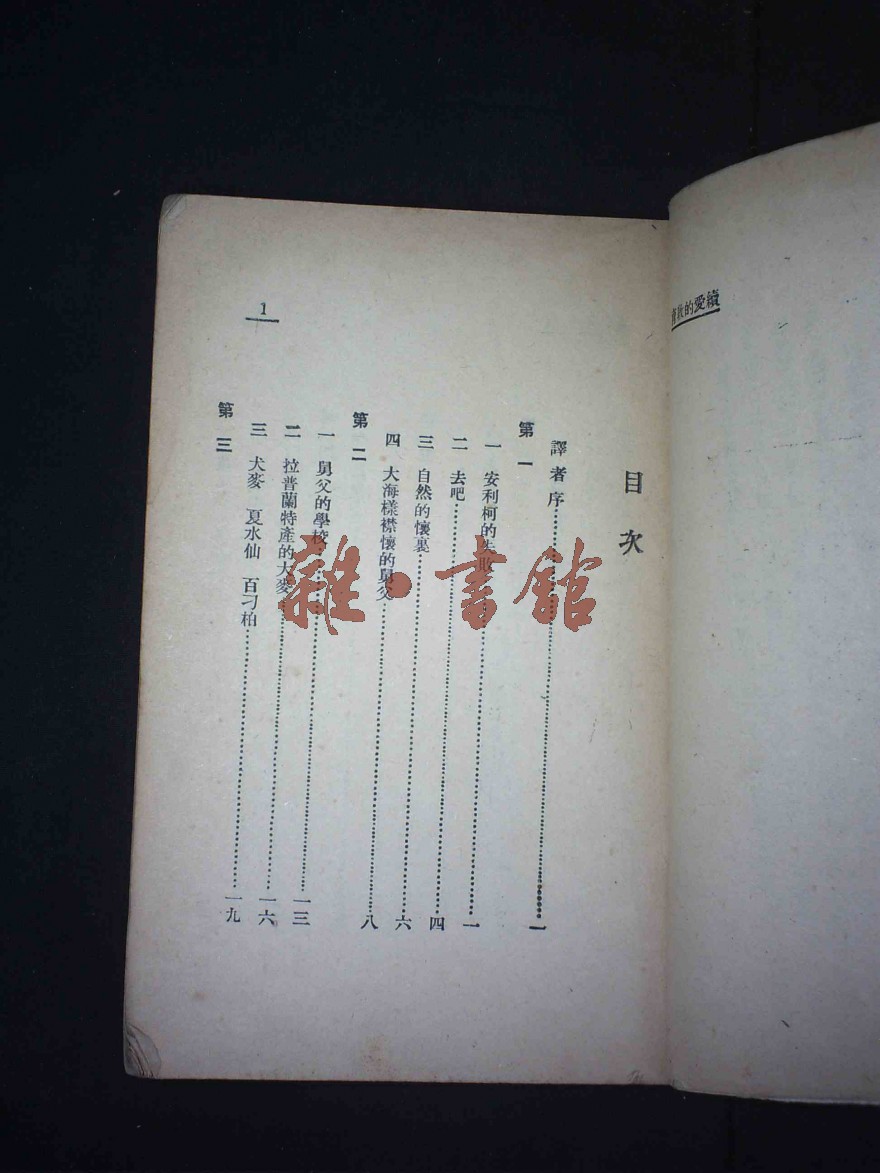 續愛的教育
目次
譯者序 一
第一
一 安利柯的失敗 一
二 去吧 四
三 自然的懷裏 六
四 大海樣襟懷的舅父 八
第二
一 舅父的學校 一三
二 拉普蘭特產的大麥 一六
三 犬麥 夏水仙 百刁柏 一九
第三
1
雜·書館